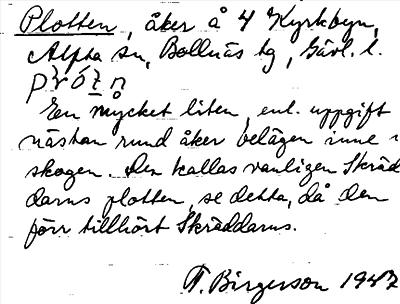 Plotten, åker å 4 Kyrkbyn,
Alfta sn, Bollnäs tg, Gävl. l.
En mycket liten, enl. uppgift
nästan rund åker belägen inne i
skogen. Den kallas vanligen Skräd
darns plotten, se detta, då den
förr tillhört Skräddarns.
T. Birgerson 1947